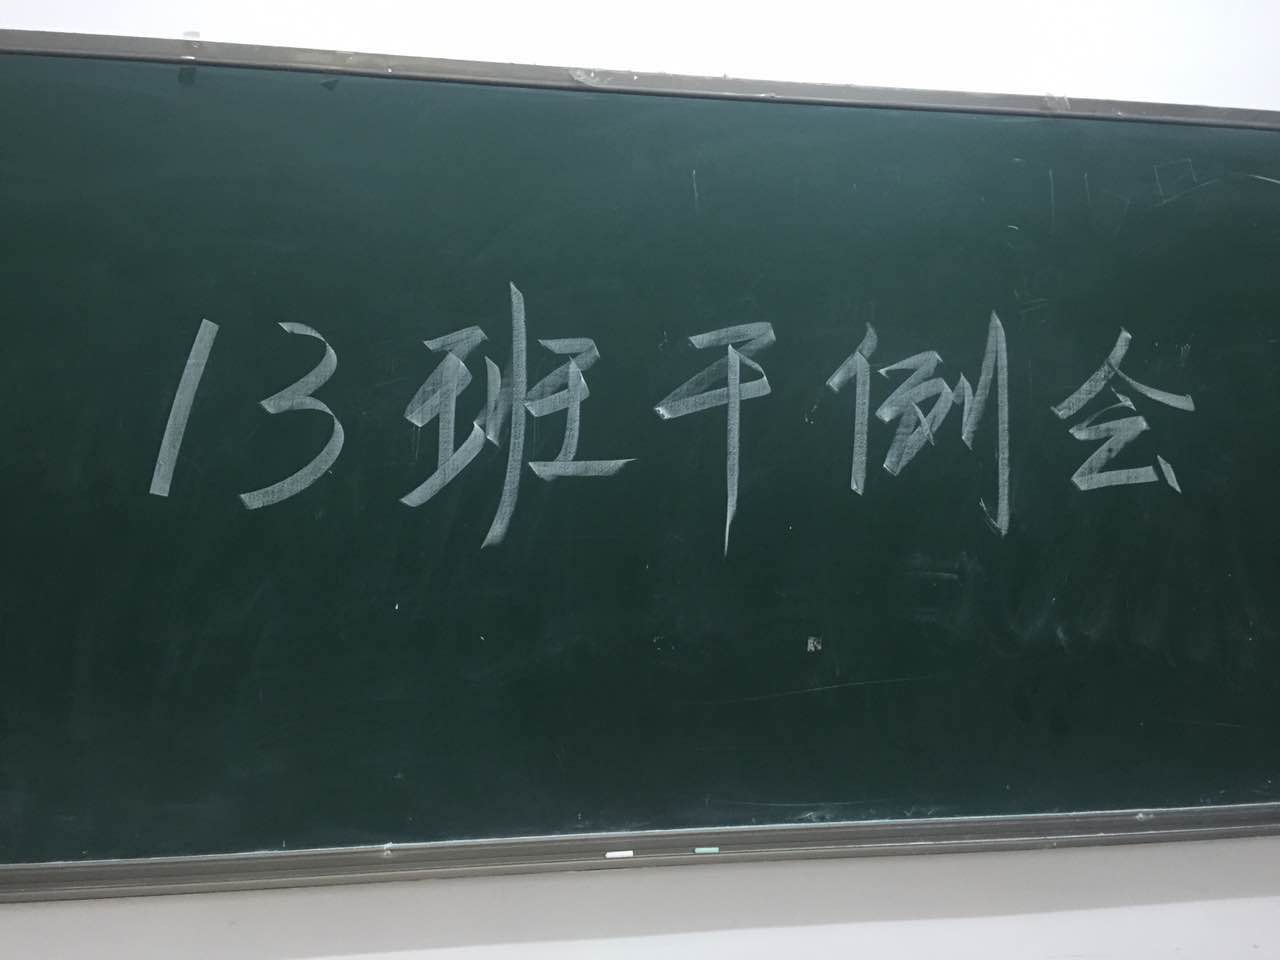 13班干例会